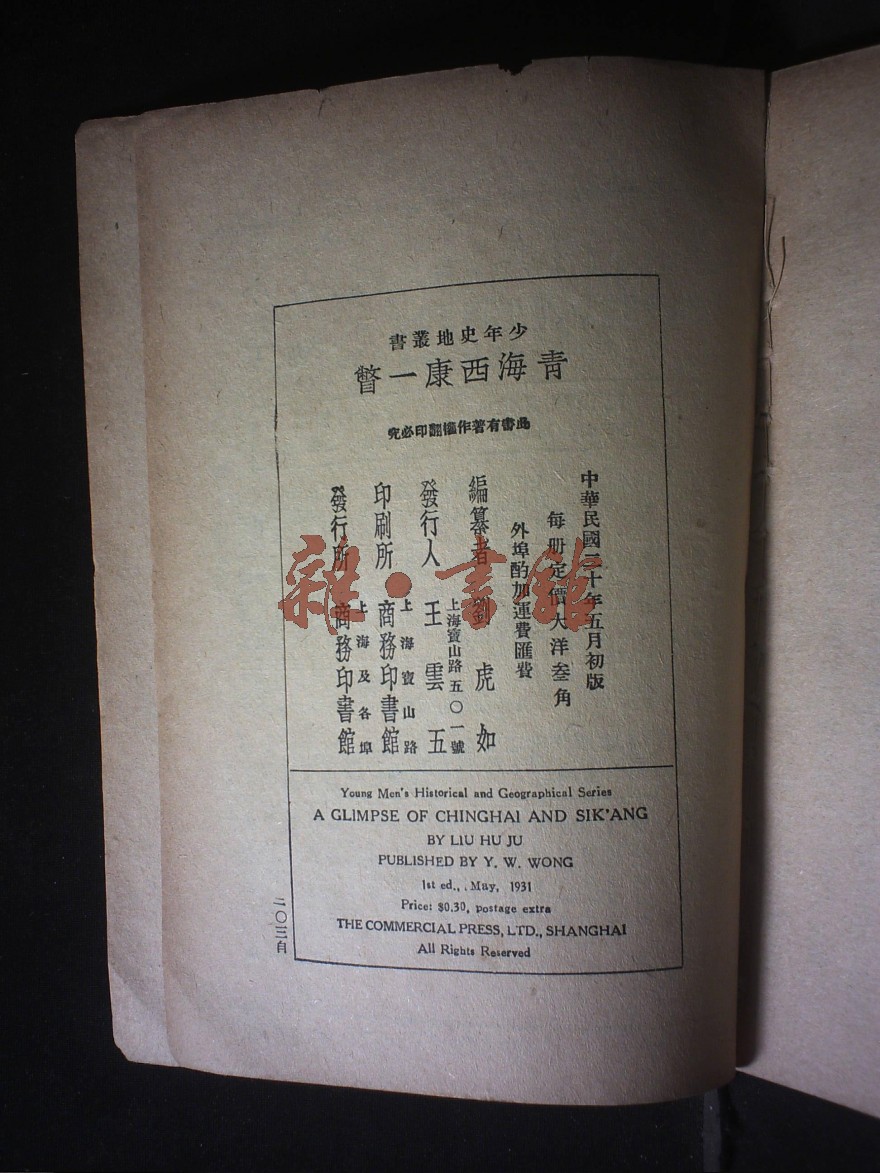 少年史地叢書
青海西康一瞥
此書有著作權翻印必究
中華民國二十年五月初版
每册定價大洋叁角
外埠酌加運費匯費
編纂者 劉虎如
上海寶山路五〇一號
發行人 王雲五
上海寶山路
印刷所 商務印書館
上海及各埠
發行所 商務印書館
Young Men's Historical and Geographical Series
A GLIMPSE OF CHINGHAI AND SIK'ANG
BY LIU HU JU
PUBLISHED BY Y. W. WONG
1st ed., May, 1931
Price: $0.30, postage extra
THE COMMERCIAL PRESS, LTD., SHANGHAI
All Rights Reserved
二〇三自
雜·書館